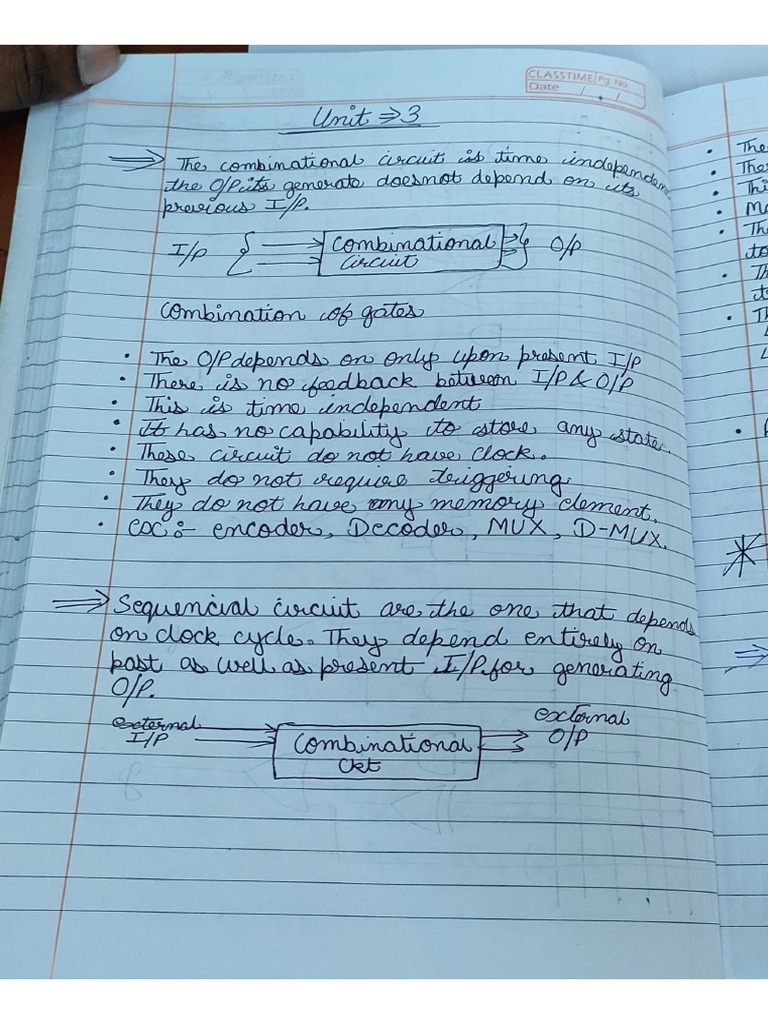 CLASSTIME Pg. No.
Date / /
Unit ⇒ 3
⇒ The combinational circuit is time independent
the O/P its generate doesnot depend on its
previous I/P.
I/P { Combinational } O/P
Circuit
Combination of gates
• The O/P depends on only upon present I/P
• There is no feedback between I/P & O/P
• This is time independent
• It has no capability to store any state.
• These circuit do not have clock.
• They do not require triggering.
• They do not have any memory element.
• :- encoder, Decoder, MUX, D-MUX.
⇒ Sequencial circuit are the one that depends
on clock cycle. They depend entirely on
past as well as present I/P for generating
O/P.
external external
I/P Combinational O/P
Ckt
• The
• 
• Thi
• 
• Th
to
• Th
• Th